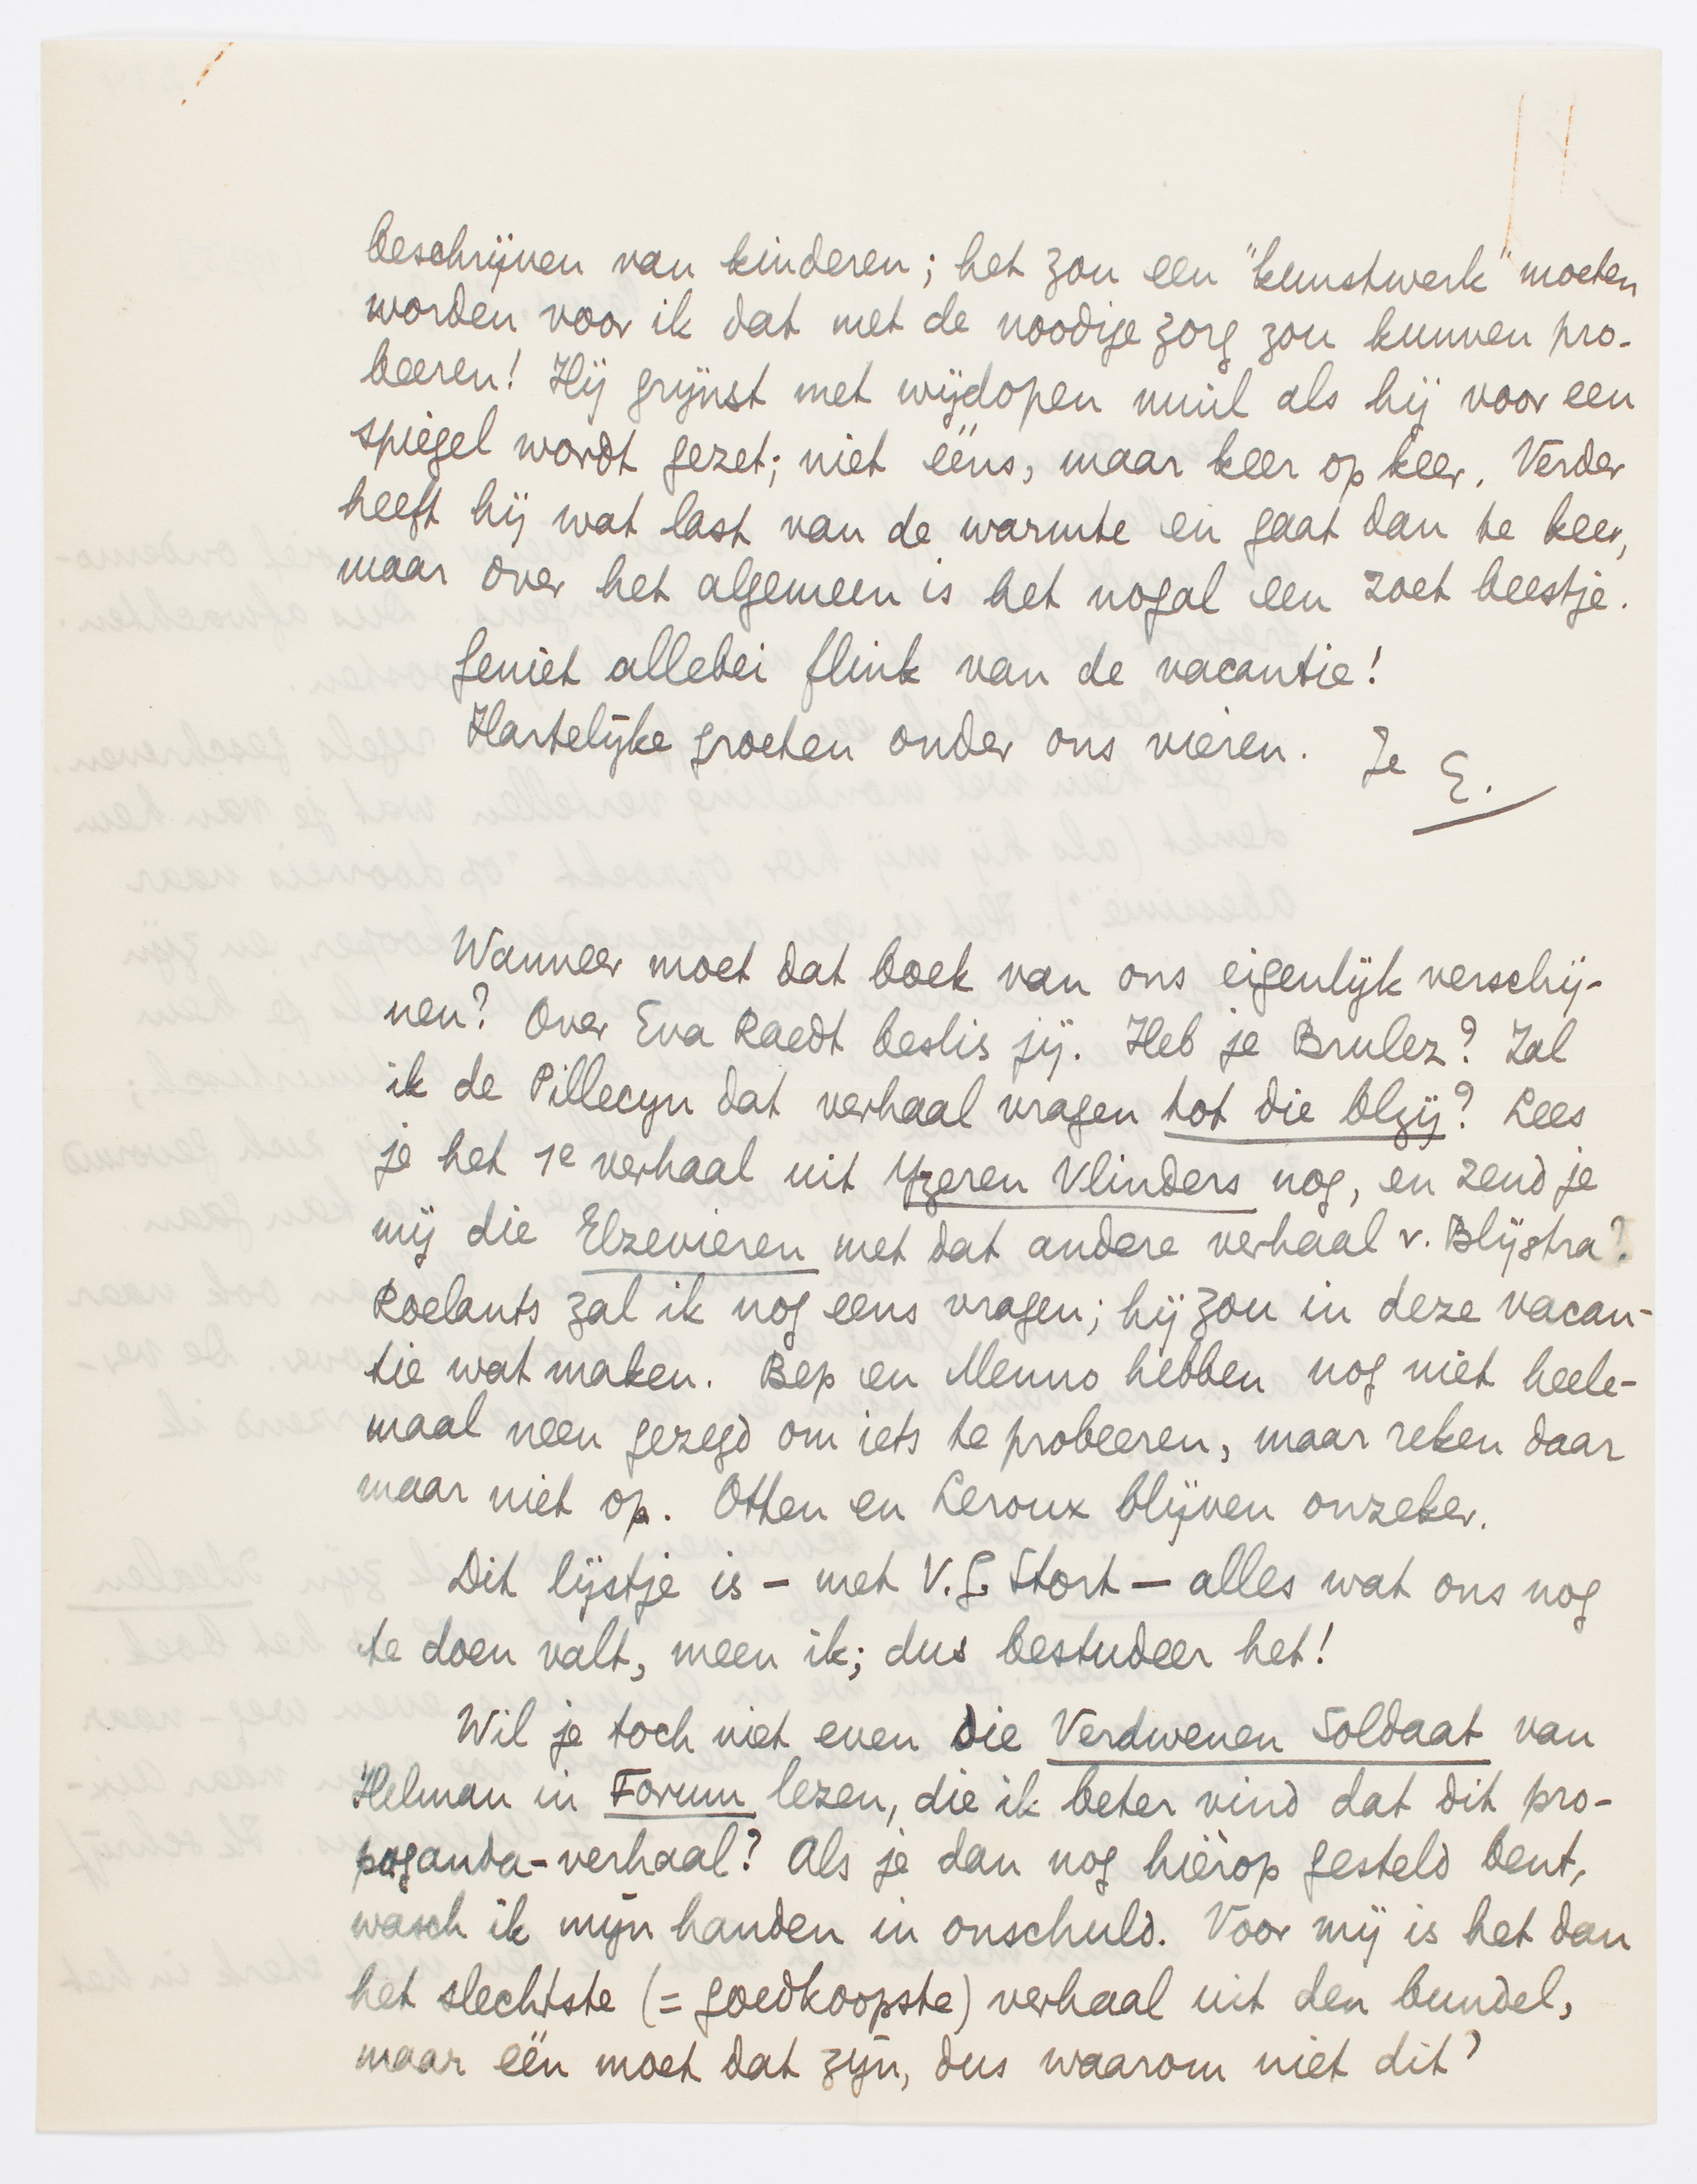 beschrijven van kinderen; het zou een "kunstwerk" moeten
worden voor ik dat met de noodige zorg zou kunnen pro-
beeren! Hij grijnst met wijdopen muil als hij voor een
spiegel wordt gezet; niet ééns, maar keer op keer. Verder
heeft hij wat last van de warmte en gaat dan te keer,
maar over het algemeen is het nogal een zoet beestje.
Geniet allebei flink van de vacantie!
Hartelijke groeten onder ons vieren. Je E.
Wanneer moet dat boek van ons eigenlijk verschij-
nen? Over Eva Raedt beslis jij. Heb je Brulez? Zal
ik de Pillecyn dat verhaal vragen tot die blzij? Lees
je het 1e verhaal uit Yzeren Vlinders nog, en zend je
mij die Elzevieren met dat andere verhaal v. Blijstra?
Roelants zal ik nog eens vragen; hij zou in deze vacan-
tie wat maken. Bep en Menno hebben nog niet heele-
maal neen gezegd om iets te probeeren, maar reken daar
maar niet op. Otten en Leroux blijven onzeker.
Dit lijstje is – met V.G. Stort – alles wat ons nog
te doen valt, meen ik; dus bestudeer het!
Wil je toch niet even die Verdwenen Soldaat van
Helman in Forum lezen, die ik beter vind dat dit pro-
paganda-verhaal? Als je dan nog hiérop gesteld bent,
wasch ik mijn handen in onschuld. Voor mij is het dan
het slechtste (= goedkoopste) verhaal uit den bundel,
maar één moet dat zijn, dus waarom niet dit?